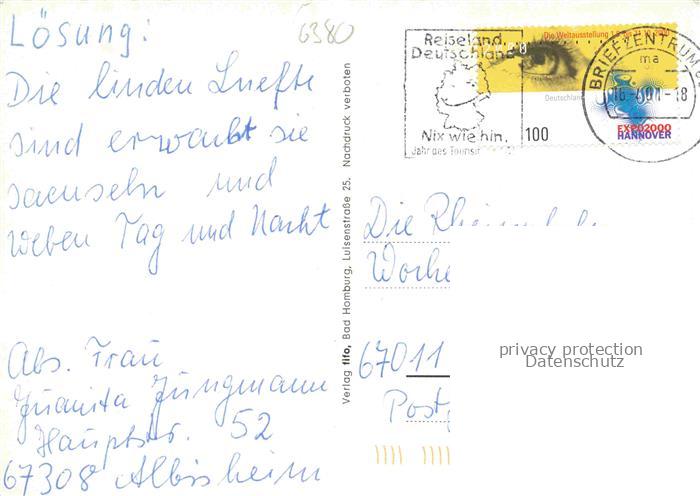 Lösung:
Die linden Luefte
sind erwacht sie
saenseln und
weben Tag und Nacht
Abs. Frau
Juanita Jungmann
Hauptstr. 52
67308 Albisheim
6380
Verlag fifo, Bad Homburg, Luisenstraße 25. Nachdruck verboten
Reiseland
Deutschland
Nix wie hin.
Jahr des Touris
Die Weltausstellung
Deutschland
100
EXPO2000
HANNOVER
BRIEFZENTRUM
ma
-18
Die
Woche
67011
Post
privacy protection
Datenschutz